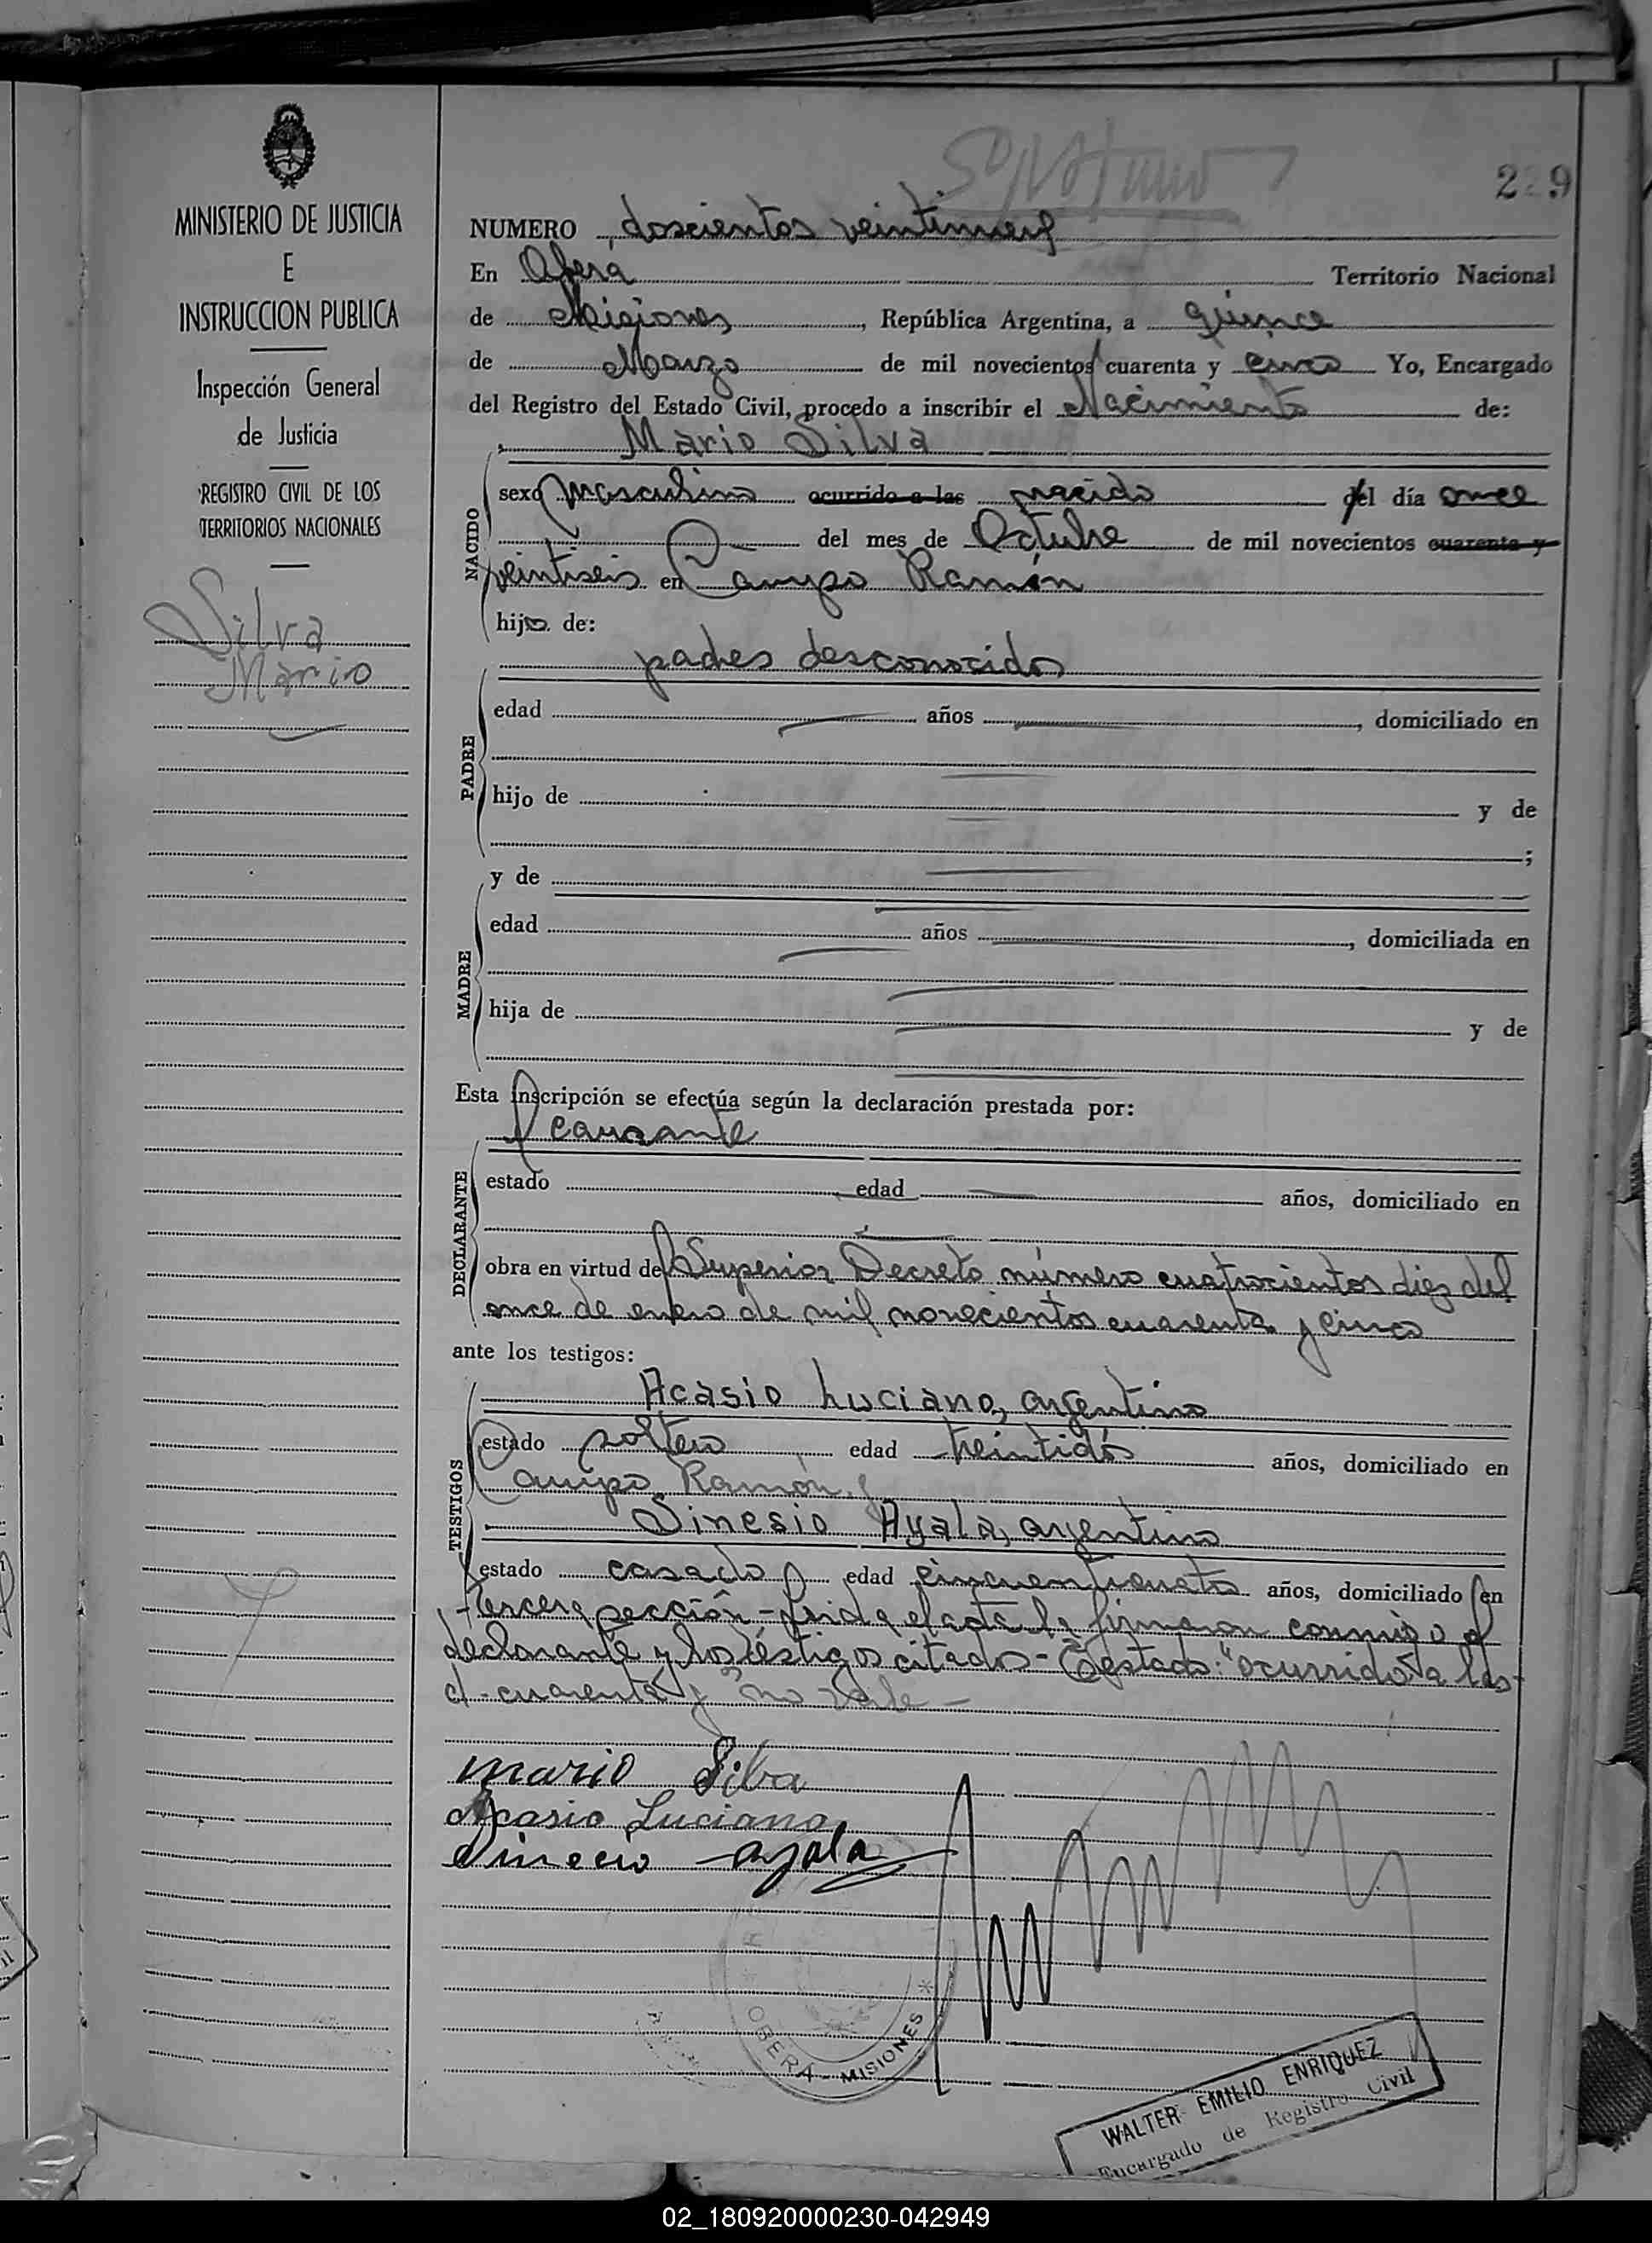 MINISTERIO DE JUSTICIA
E
INSTRUCCION PUBLICA
Inspección General
de Justicia
REGISTRO CIVIL DE LOS
TERRITORIOS NACIONALES
Silva
Mario
229
NUMERO doscientos veintinueve
En Oberá Territorio Nacional
de Misiones, República Argentina, a quince
de Marzo de mil novecientos cuarenta y cinco Yo, Encargado
del Registro del Estado Civil, procedo a inscribir el Nacimiento de:
Mario Silva
NACIDO
sexo masculino ocurrido a las nacido el día once
del mes de Octubre de mil novecientos cuarenta y
veintiseis en Campo Ramón
hijo de:
padres desconocidos
PADRE
edad años, domiciliado en
hijo de y de
;
y de
MADRE
edad años, domiciliada en
hija de y de
Esta inscripción se efectúa según la declaración prestada por:
causante
DECLARANTE
estado edad años, domiciliado en
obra en virtud del Superior Decreto número cuatrocientos diez del
once de enero de mil novecientos cuarenta y cinco
ante los testigos:
TESTIGOS
Acasio Luciano, argentino
estado soltero edad treintidós años, domiciliado en
Campo Ramón y
Sinesio Ayala, argentino
estado casado edad cincuenticuatro años, domiciliado en
tercera sección - Leida el acta la firmaron conmigo el
declarante y los testigos citados - Testado: "ocurrido a las-
d-cuarenta y" no vale -
Mario Silva
Acasio Luciano
Sinecio ayala
OBERA - MISIONES *
WALTER EMILIO ENRIQUEZ
Encargado de Registro Civil
02_180920000230-042949